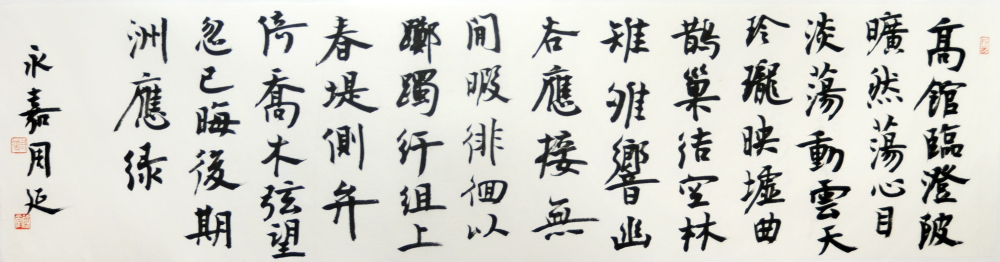 髙館臨澄陂
曠然蕩心目
淡蕩動雲天
玲瓏映墟曲
鵲巢结空林
雉雊響幽
谷應接無
間暇徘徊以
躑躅紆組上
春堤側弁
倚喬木弦望
忽已晦後期
洲應绿
永嘉周延